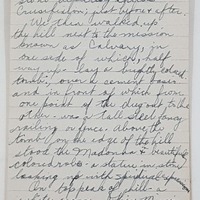 Crucifixion, just before & after
. We then walked up
the hill next to the mission
known as Calvary, in
one side of which, half
way up, lay a bright colored
tomb, over a cement basin
and in front of which from
one point of the dug out to the
other - was a tall steel fancy
railing or fence. Above the
tomb, on the edge of the hill
stood the Madonna & beautiful
colored robe - a statue in stone,
looking up with spiritual expression
On top peak of hill - a